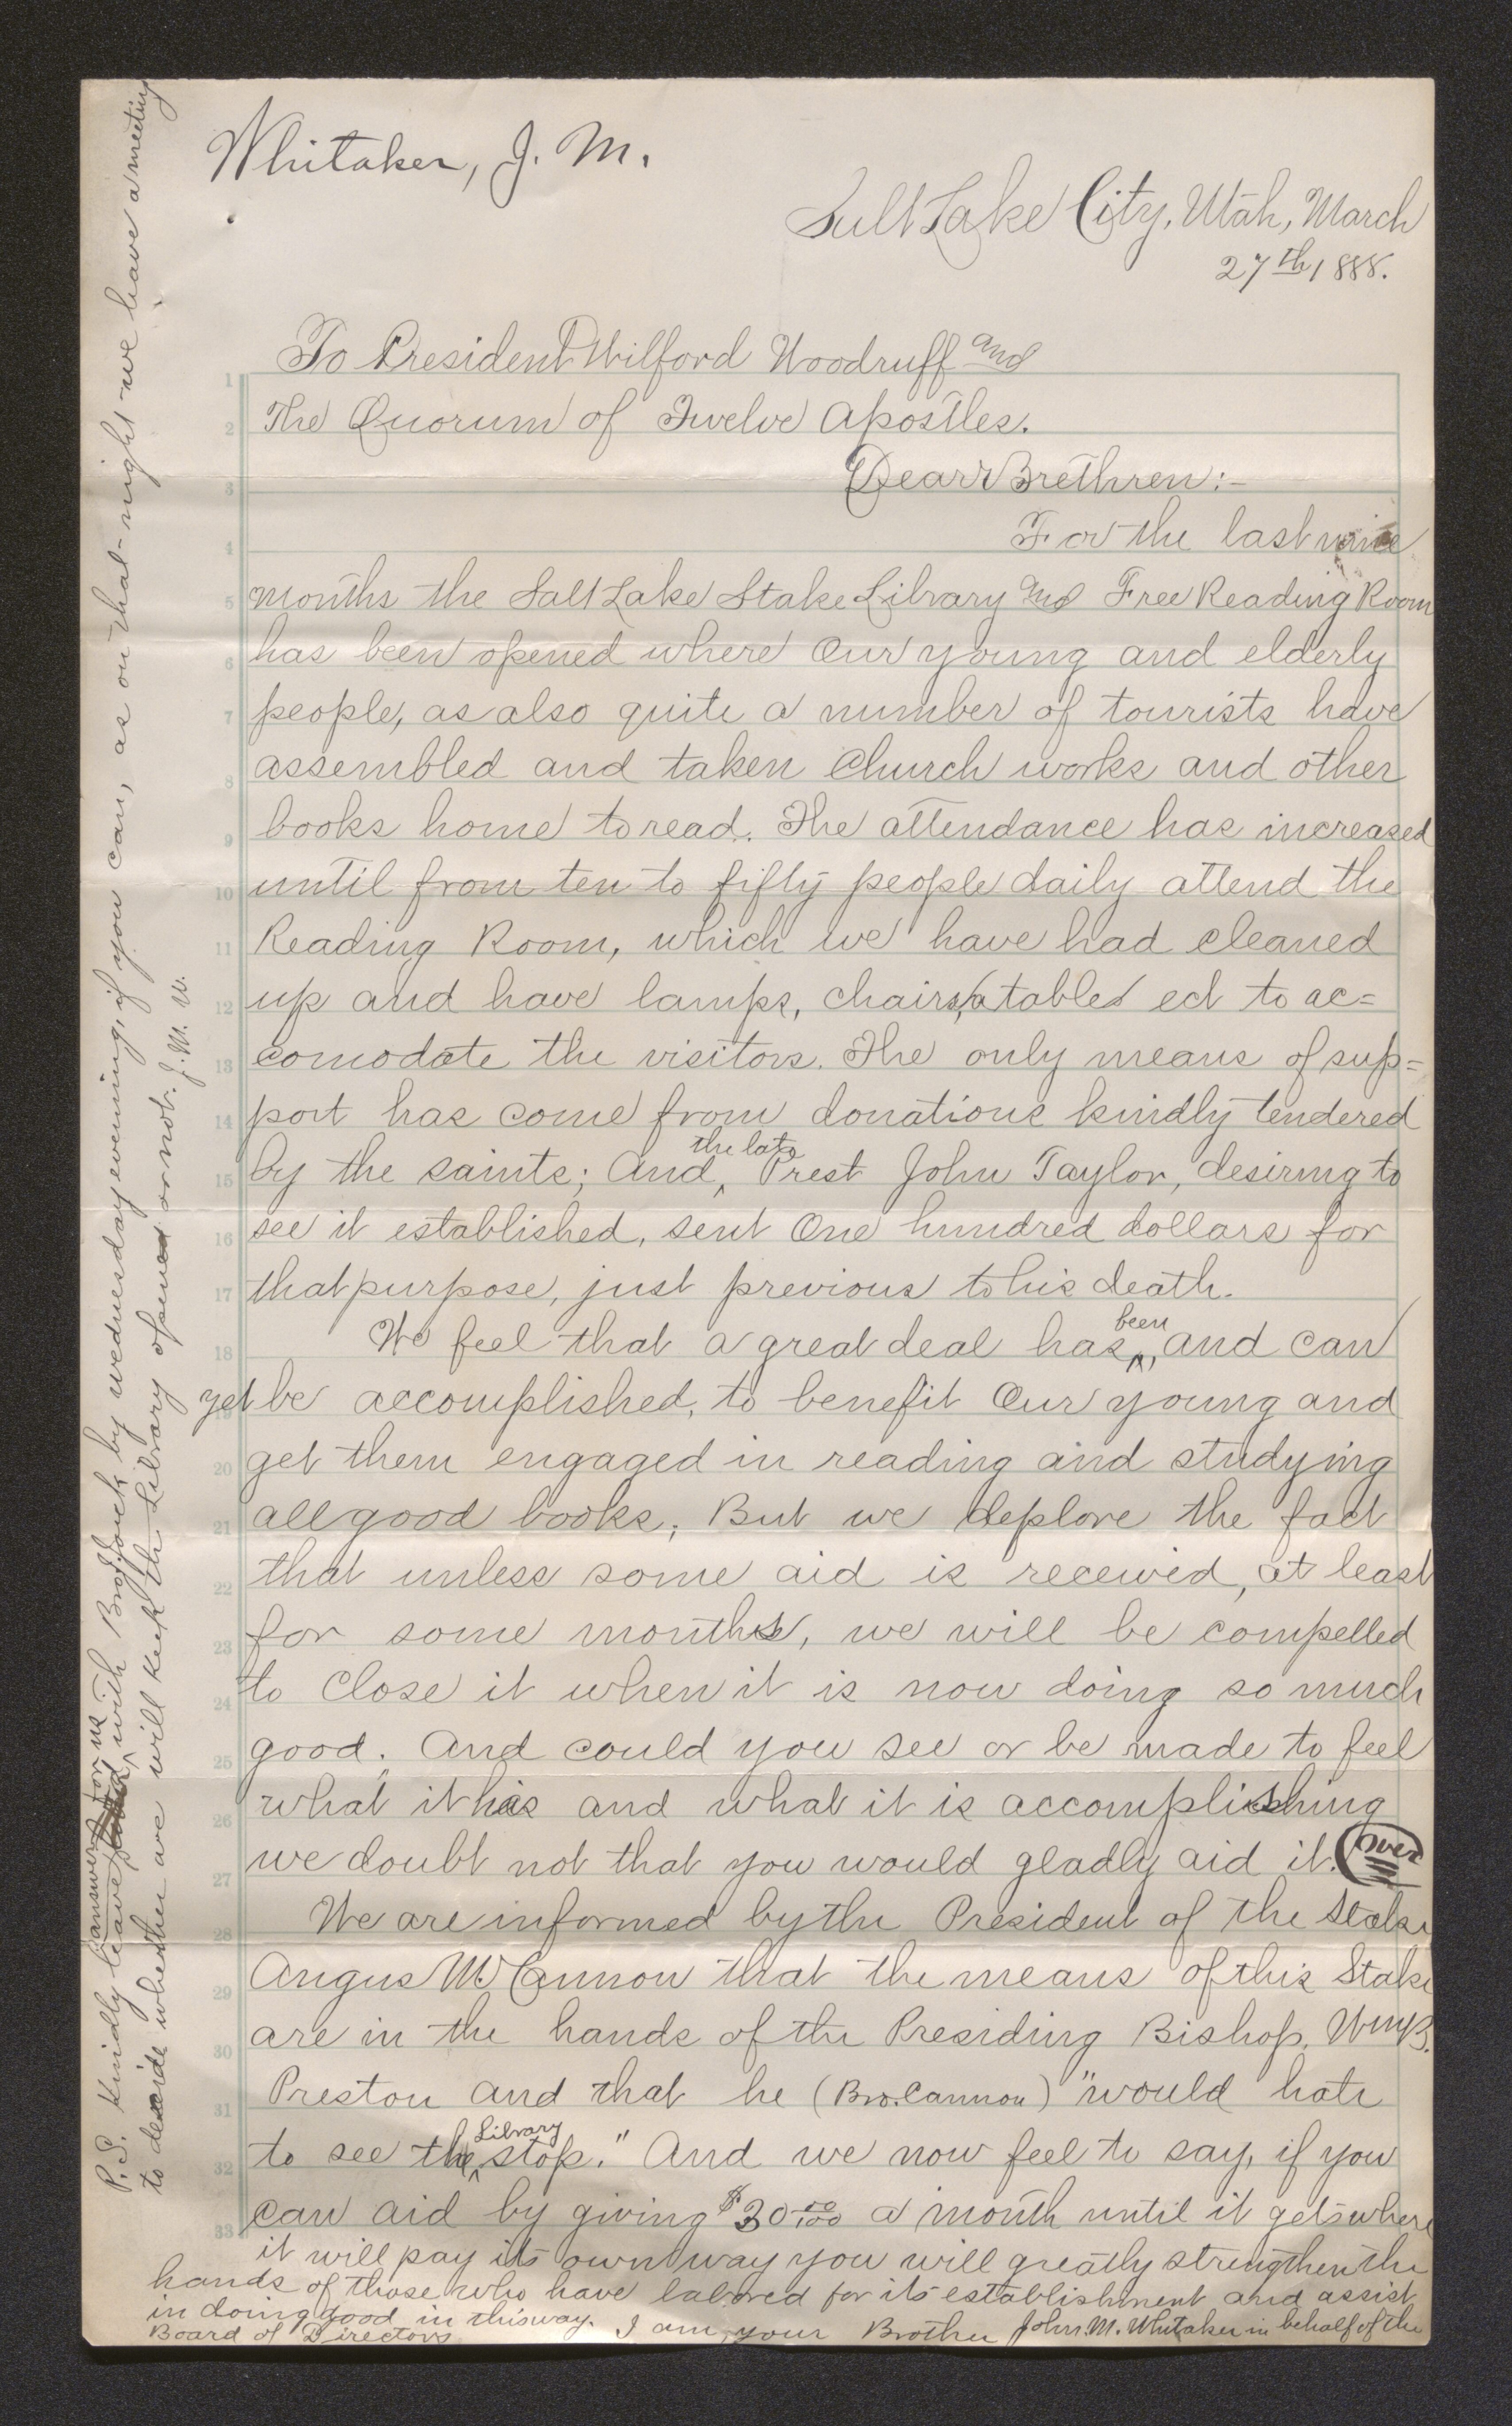 Whitaker, J. M.
Salt Lake City, Utah, March
27th 1888.
To President Wilford Woodruff and
The Quorum of Twelve Apostles.
Dear Brethren:-
For the last nine
months the Salt Lake Stake Library and Free Reading Room
has been opened where Our young and elderly
people, as also quite a number of tourists have
assembled and taken Church works and other
books home to read. The attendance has increased
until from ten to fifty people daily attend the
Reading Room, which we have had cleaned
up and have lamps, chairs, a table ect to ac=
comodate the visitors. The only means of sup=
port has come from donations kindly tendered
by the saints; And, the late Prest John Taylor, desiring to
see it established, sent One hundred dollars for
that purpose, just previous to his death.
We feel that a great deal has been, and can
yet be accomplished, to benefit Our young and
get them engaged in reading and studying
all good books; But we deplore the fact
that unless some aid is received, at least
for some months, we will be compelled
to close it when it is now doing so much
good. And could you see or be made to feel
what it has and what it is accomplishing
we doubt not that you would gladly aid it. over
We are informed by the President of the Stake
Angus M. Cannon that the means of this Stake
are in the hands of the Presiding Bishop, Wm B.
Preston and that he (Bro. Cannon) "would hate
to see the Library stop." And we now feel to say, if you
can aid by giving $30 00/100 a month until it gets where
it will pay its own way you will greatly strengthen the
hands of those who have labored for its establishment and assist
in doing good in this way. I am, your Brother John. M. Whitaker in behalf of the
Board of Directors
P.S. Kindly leave answer for us with Bro. Jack by wednesday evening, if you can, as on that-night-we have a meeting
to decide whether we will keep the Library opened or not. J. M. W.